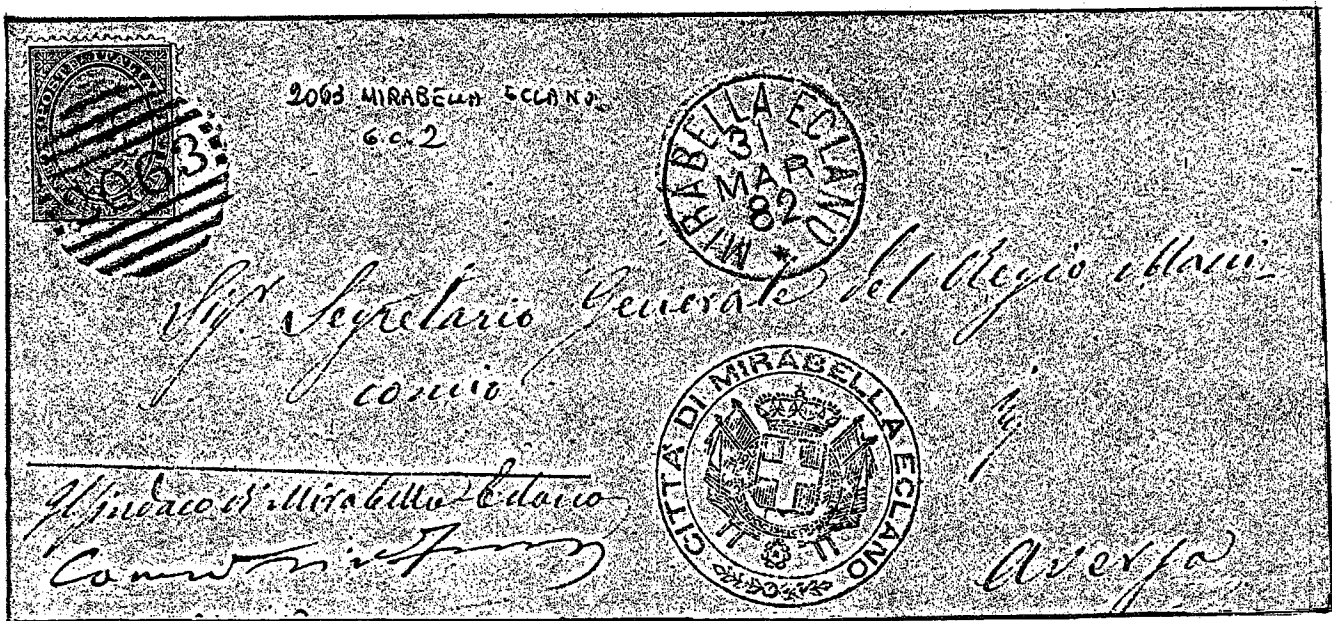 POSTE ITALIANE
2063
2063 MIRABELLA ECLANO
G.C.2
MIRABELLA ECLANO *
31
MAR
82
Sigr. Segretario Generale del Regio Mani-
comio
di
CITTÀ DI MIRABELLA ECLANO
Il Sindaco di Mirabella Eclano
Aversa